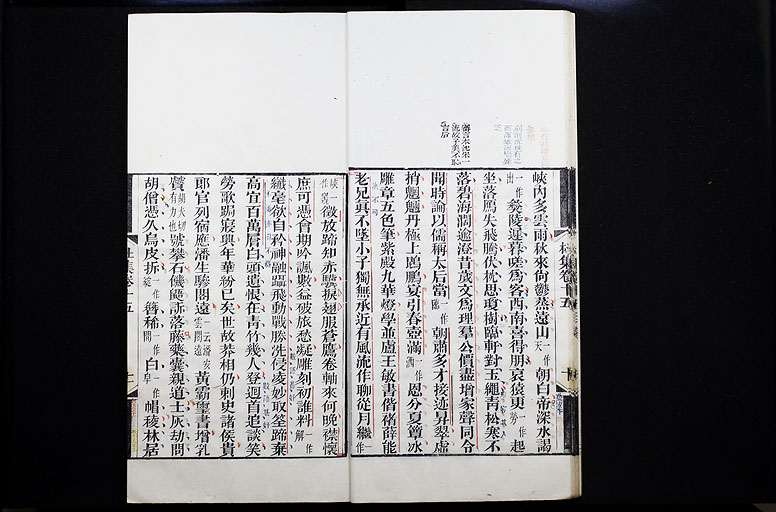 峽內多雲雨秋來尚鬱蒸遠山一作天朝白帝深水謁
一作出夔陵遲暮嗟爲客西南喜得朋哀猿更一作勞起
坐落鴈失飛騰伏枕思瓊樹臨軒對玉繩青松寒不
落碧海闊逾澄昔歲文爲理羣公價盡增家聲同令
聞時論以儒稱太后當一作臨朝肅多才接迹昇翠虛
捎魍魎丹極上鵾鵬宴引春壺滿一作酒恩分夏簟冰
雕章五色筆紫殿九華燈學並盧王敏書偕褚薛能
老兄真不墜小子獨無承近有風流作聊從月繼一作
峽一作窟徵放蹄知赤驥捩翅服蒼鷹卷軸來何晚襟懷
庶可憑會期吟諷數益破旅愁凝雕刻初誰料一作解
纖毫欲自矜神融躡飛動戰勝洗侵凌妙取筌蹄棄
高宜百萬層白頭遺恨在青竹幾人登迴首追談笑
勞歌跼寢興年華紛已矣世故莽相仍刺史諸侯貴
郎官列宿應潘生驂閣遠一云潘安雲閣遠黃霸璽書增乳
贙胡犬切有力也號攀石饑鼯訴落藤藥囊親道士灰劫問
胡僧憑久烏皮折一作綻簪稀一作閒白一作皁帽稜林居
杜集卷十五